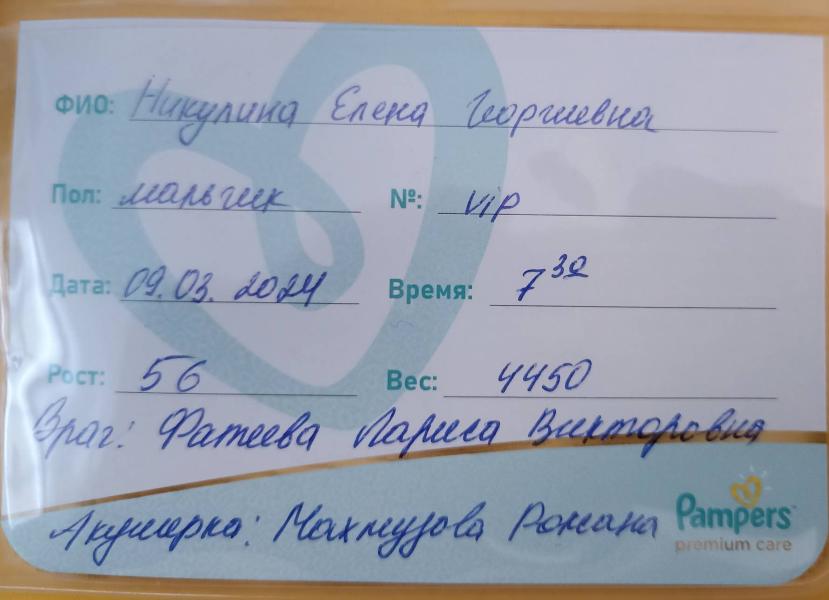 ФИО: Никулина Елена Георгиевна
Пол: мальчик №: vip
Дата: 09.03.2024 Время: 7 30
Рост: 56 Вес: 4450
Врач: Фатеева Лариса Викторовна
Акушерка: Махмудова Роксана
Pampers
premium care